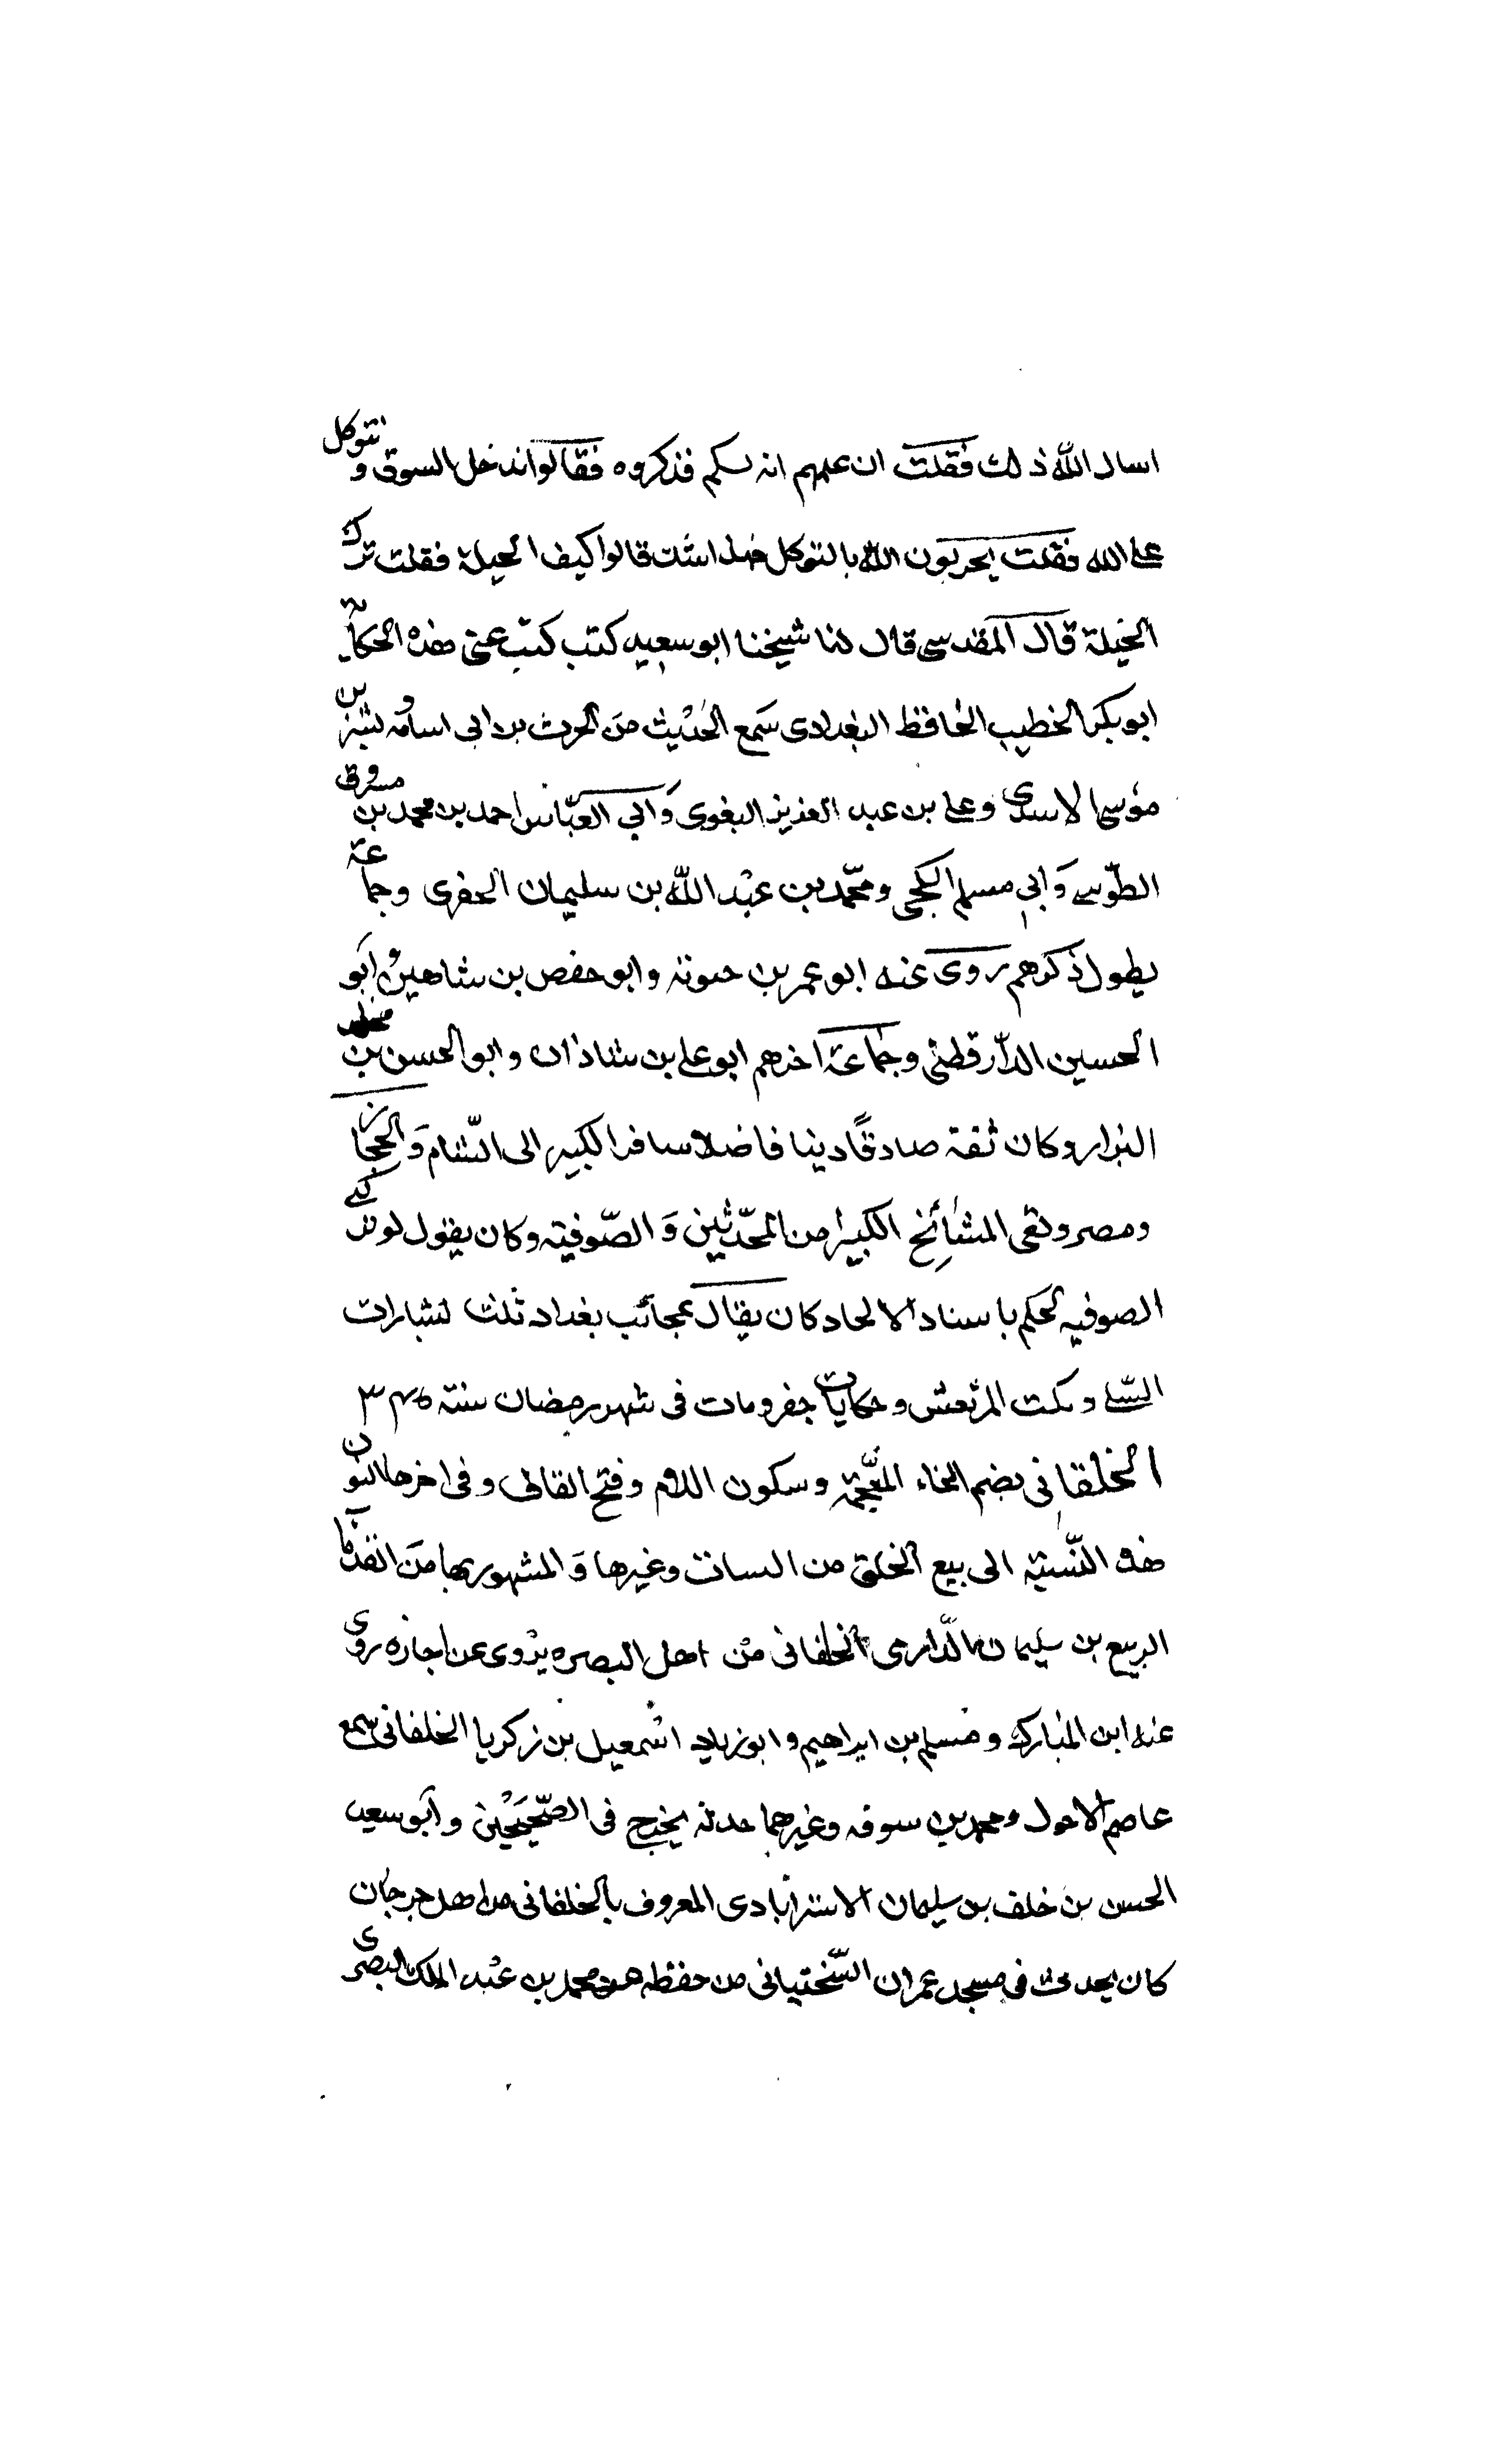 اسال الله ذلك فقلت ان علمهم انه سكم فذكروه فقالوا ندخل السوق و نتوكل
على الله فقلت يحربون الله بالتوكل هذا است قالوا كيف الحيلة فقلت ترك
الحيلة قال المقدسى قال لنا شيخنا ابو سعيد كتب كتب عنى هذه الحكاية
ابو بكر الخطيب الحافظ البغدادى سمع الحديث من الحرث بن ابى اسامه وبشر بن
موسى الاسدى وعلى بن عبد العزيز البغوى وابى العباس احمد بن محمد بن مسروق
الطوسے وابى مسلم الكجى ومحمد بن عبد الله بن سليمان الحضرى وجماعة
يطول ذكرهم روى عنه ابو عمر بن حيوته وابو حفص بن شاهين و ابو
الحسين الدارقطنى وجماعة اخرهم ابو على بن شاذان وابو الحسن بن مخلد
البزار وكان ثقة صادقًا دينا فاضلا سافر الكبير الى الشام والحجاز
ومصر ولقى المشائخ الكبيرا من المحدثين و الصوفيه وكان يقول لو تركے
الصوفيه لحكم باسناد الالحاد كان يقال عجائب بغداد ثلث لشارات
الشبلے و نكت المرتعش و حكايات جفر ومات فى شهر رمضان سنة ٣٤٥
الخلقانى بضم الخاء المعجمة وسكون اللام وفتح القاف وفى اخرها النون
هذه النسبة الى بيع الخلق من السات وغيرها و المشهور بها من القدما
الربيع بن سليمان الدارمى الخلفانى من اهل البصره يروى عن اجازه روى
عنه ابن المبارك و مسلم بن ابراهيم و ابو زياد اسمعيل بن زكريا الخلفانى سمع
عاصم الاحول ومحمد بن سوقه وغيرهما حدثه يخرج فى الصحيحين و ابو سعيد
الحسن بن خلف بن سليمان الاسترابادى المعروف بالخلفانى من اهل جرجان
كان يحدث فى مسجد عمران السختيانى من حفظه عن محمد بن عبد الملك البصرى